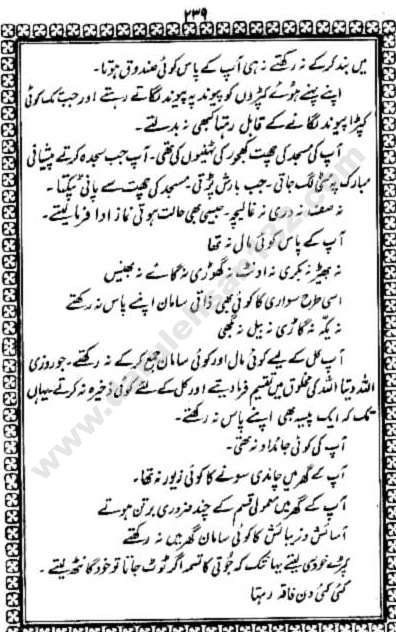 ۲۳۹
میں بند کر کے نہ رکھتے نہ ہی آپ کے پاس کوئی صندوق ہوتا۔
اپنے پہنے ہوئے کپڑوں کو پیوند پہ پیوند لگاتے رہتے اور جب تک کوئی
کپڑا پیوند لگانے کے قابل رہتا کبھی نہ بدلتے۔
آپ کی مسجد کی چھت کھجور کی ٹہنیوں کی تھی۔ آپ جب سجدہ کرتے پیشانی
مبارک پر مٹی لگ جاتی۔ جب بارش پڑتی۔ مسجد کی چھت سے پانی ٹپکتا۔
نہ صف نہ دری نہ غالیچہ۔ جیسی بھی حالت ہوتی نماز ادا فرما لیتے۔
آپ کے پاس کوئی مال نہ تھا
نہ بھیڑ نہ بکری نہ اونٹ نہ گھوڑی نہ گائے نہ بھینس
اسی طرح سواری کا کوئی بھی ذاتی سامان اپنے پاس نہ رکھتے
نہ یکہ نہ گاڑی نہ بیل نہ بگھی
آپ کل کے لیے کوئی مال اور کوئی سامان جمع کر کے نہ رکھتے۔ جو روزی
اللہ دیتا اللہ کی مخلوق میں تقسیم فرما دیتے اور کل کے لئے کوئی ذخیرہ نہ کرتے۔ یہاں
تک کہ ایک پیسہ بھی اپنے پاس نہ رکھتے۔
آپ کی کوئی جائداد نہ تھی۔
آپ کے گھر میں چاندی سونے کا کوئی زیور نہ تھا۔
آپ کے گھر میں معمولی قسم کے چند ضروری برتن ہوتے
آسائش و زیبائش کا کوئی سامان گھر میں نہ رکھتے
کپڑے خود سی لیتے یہاں تک کہ جوتی کا تسمہ اگر ٹوٹ جاتا تو خود گانٹھ لیتے۔
کئی کئی دن فاقہ رہتا